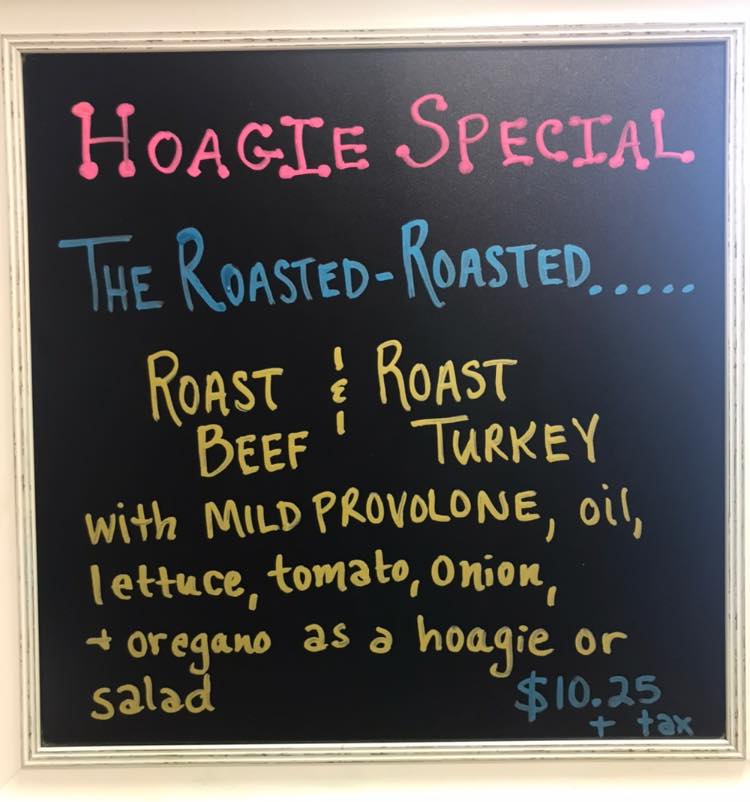 HOAGIE SPECIAL
THE ROASTED-ROASTED.....
ROAST & ROAST
BEEF TURKEY
with MILD PROVOLONE, oil,
lettuce, tomato, onion,
+ oregano as a hoagie or
salad $10.25
+ tax